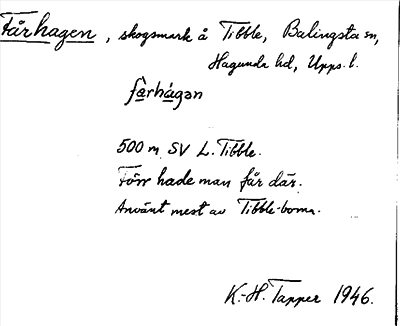 Fårhagen, skogsmark å Tibble, Balingsta sn,
Hagunda hd, Upps. l.
fårhágən
500 m SV L. Tibble.
Förr hade man får där.
Använt mest av Tibble-borna.
K.-H. Tapper 1946.